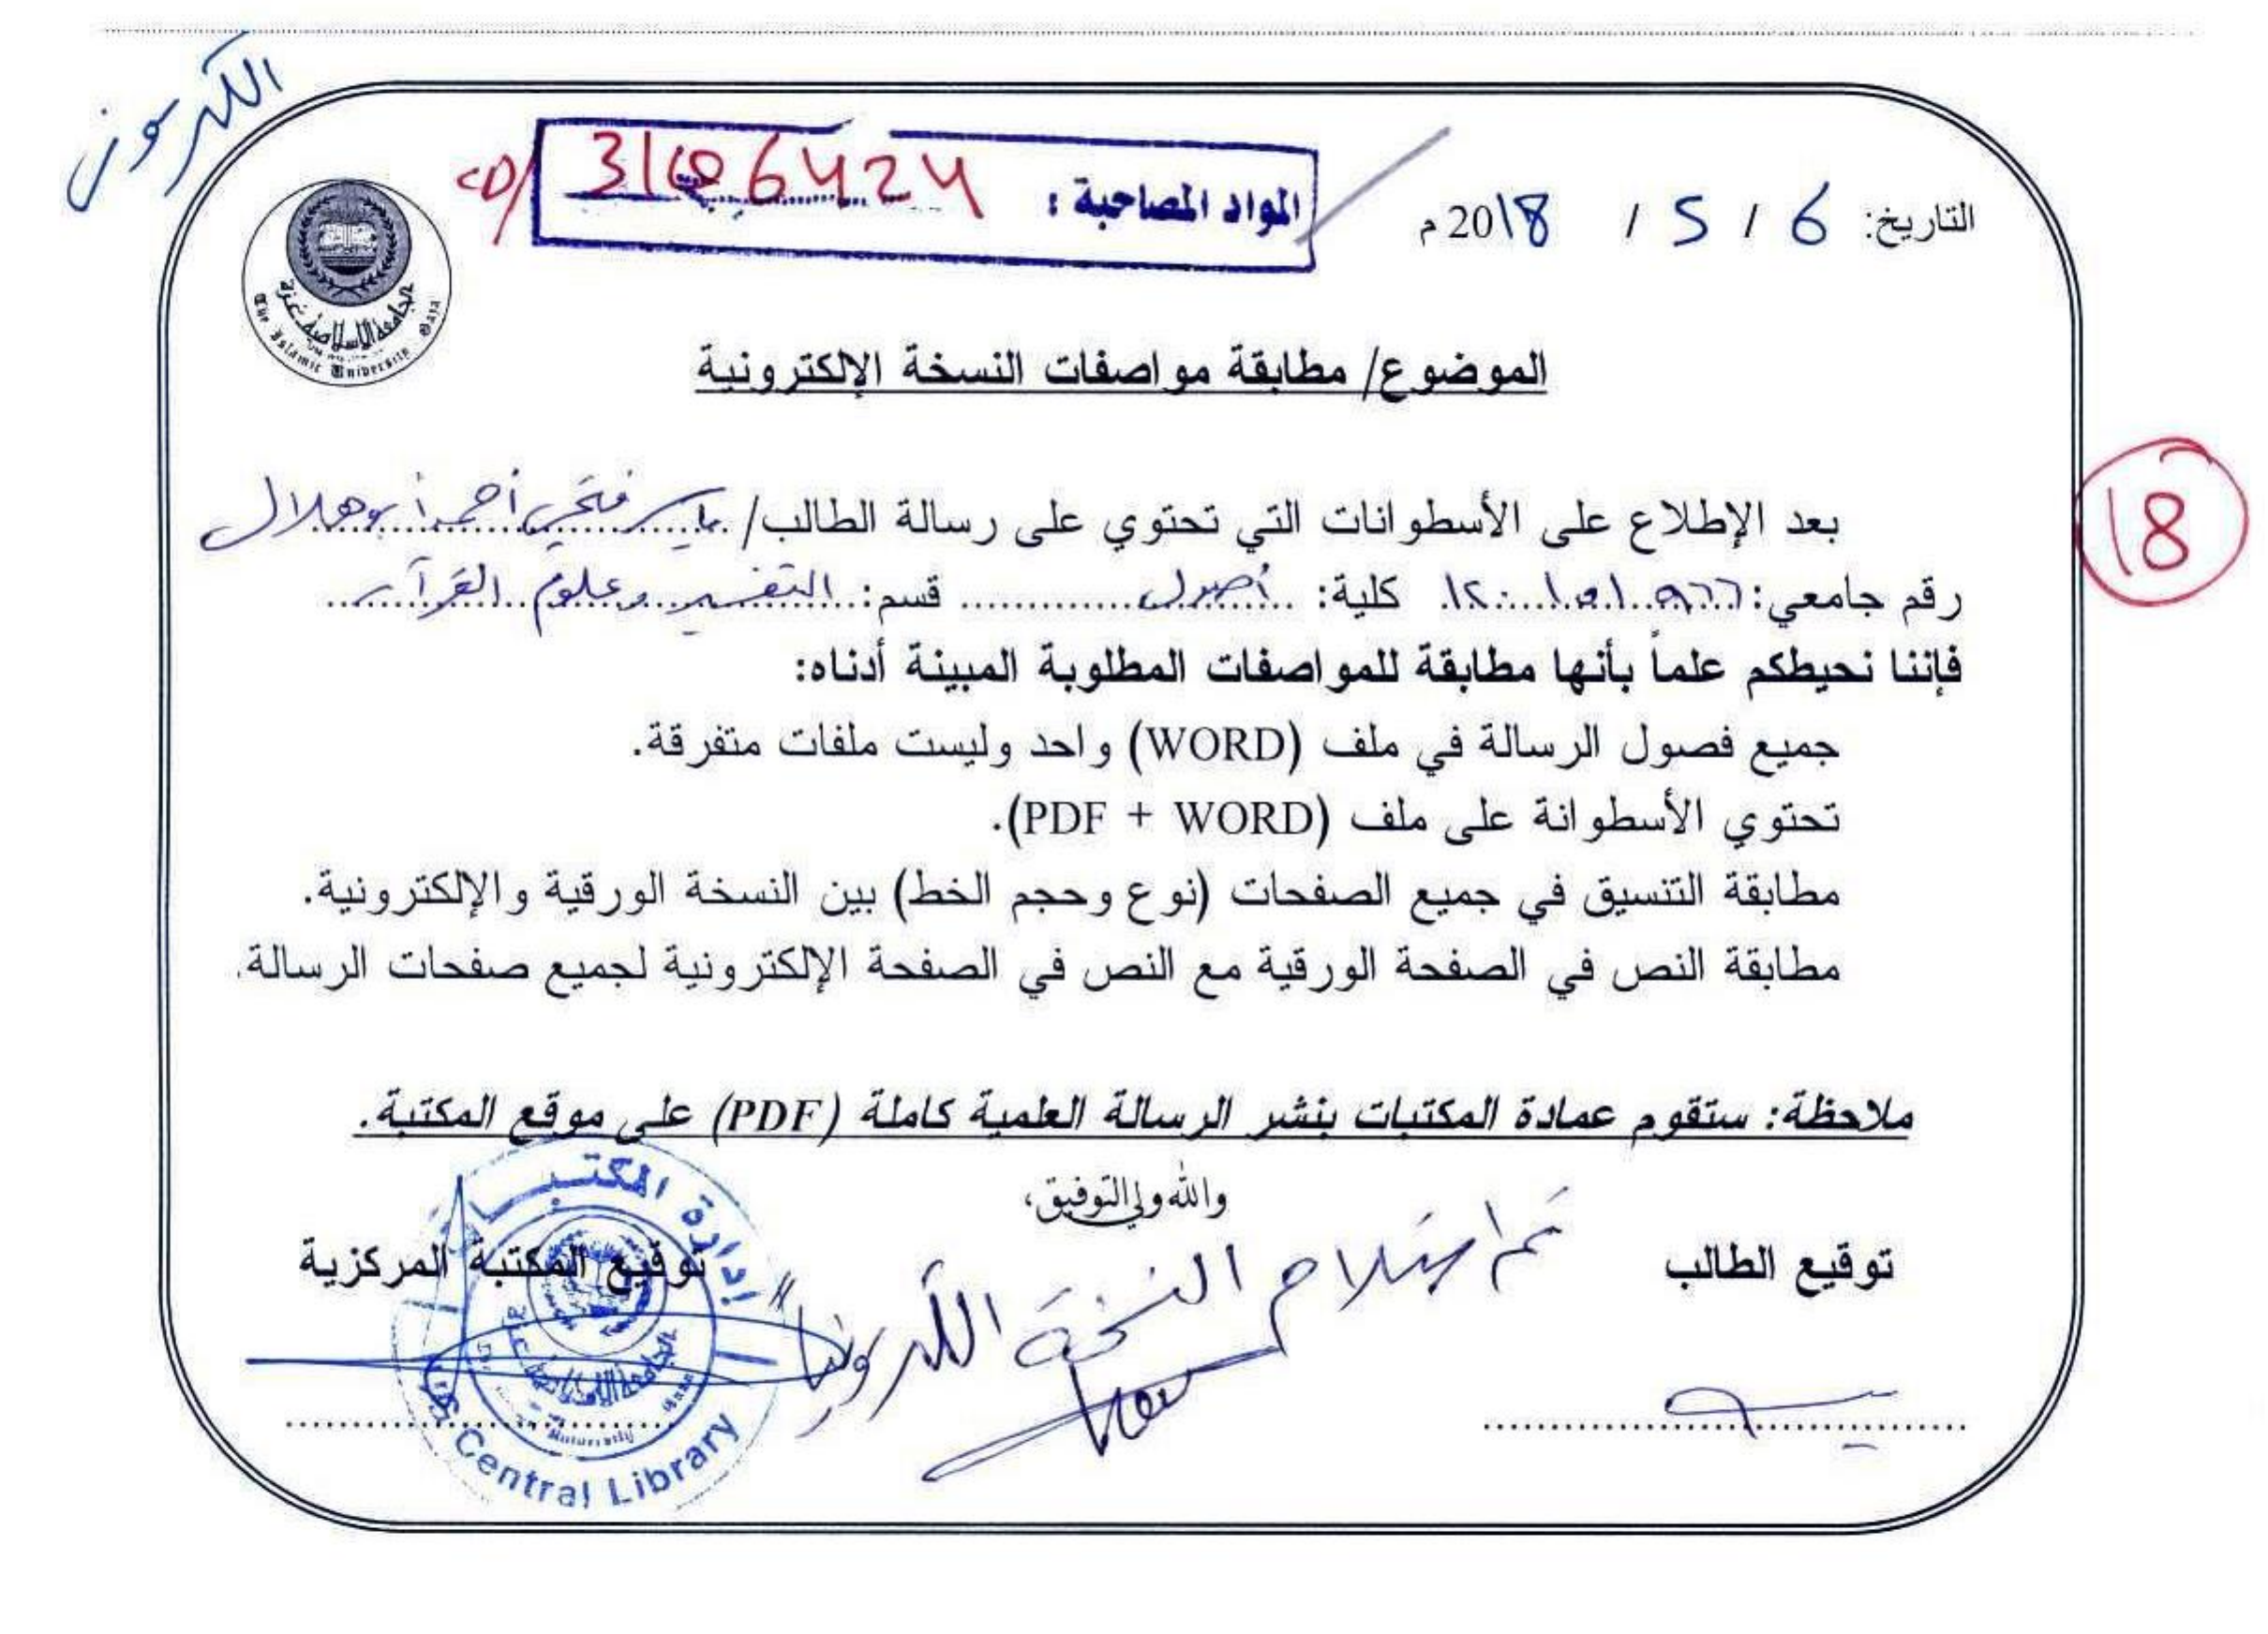 الكتروني
التاريخ: 6 / 5 / 2018 م
المواد المصاحبة :
CD/
الجامعة الإسلامية غزة
The Islamic University Gaza
الموضوع/ مطابقة مواصفات النسخة الإلكترونية
18
بعد الإطلاع على الأسطوانات التي تحتوي على رسالة الطالب/ ياسر فتحي أحمد أبو هلال
رقم جامعي: كلية: أصول قسم: التفسير وعلوم القرآن
فإننا نحيطكم علماً بأنها مطابقة للمواصفات المطلوبة المبينة أدناه:
جميع فصول الرسالة في ملف (WORD) واحد وليست ملفات متفرقة.
تحتوي الأسطوانة على ملف (PDF + WORD).
مطابقة التنسيق في جميع الصفحات (نوع وحجم الخط) بين النسخة الورقية والإلكترونية.
مطابقة النص في الصفحة الورقية مع النص في الصفحة الإلكترونية لجميع صفحات الرسالة.
ملاحظة: ستقوم عمادة المكتبات بنشر الرسالة العلمية كاملة (PDF) على موقع المكتبة.
والله ولي التوفيق،
توقيع الطالب
تم استلام النسخة الكترونياً
توقيع المكتبة المركزية
إدارة المكتبات
Central Library